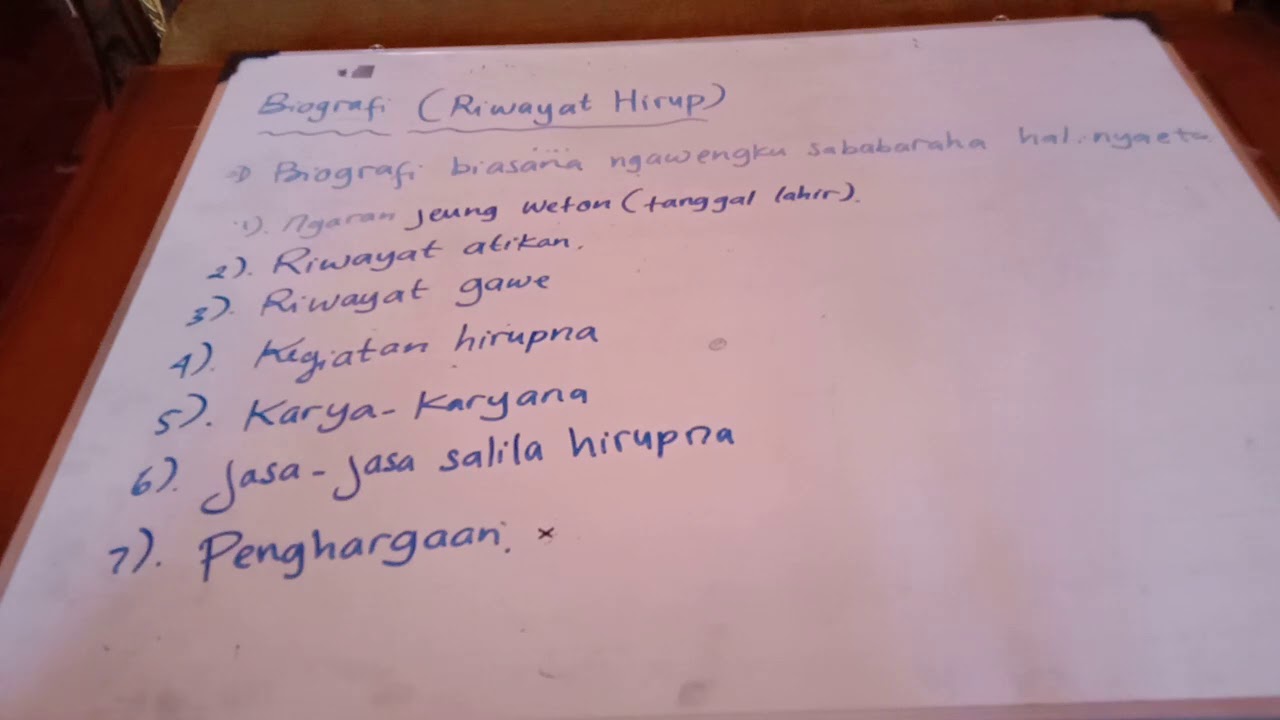 Biografi (Riwayat Hirup)
⇒ Biografi biasana ngawengku sababaraha hal. nyaeta
1). Ngaran jeung weton (tanggal lahir).
2). Riwayat atikan.
3). Riwayat gawe
4). Kegiatan hirupna
5). Karya-karyana
6). Jasa-jasa salila hirupna
7). Penghargaan.